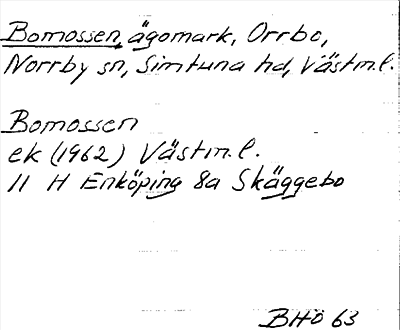 Bomossen, ägomark, Orrbo,
Norrby sn, Simtuna hd, Västm.l.
Bomossen
ek (1962) Västm.l.
11 H Enköping 8a Skäggebo
BHÖ 63